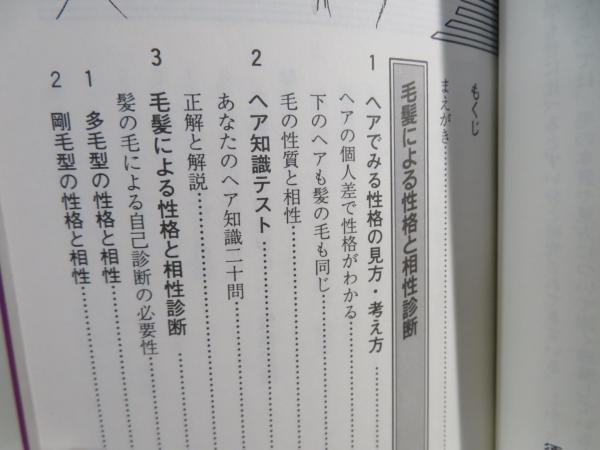 もくじ
まえがき
毛髪による性格と相性診断
1 ヘアでみる性格の見方・考え方
ヘアの個人差で性格がわかる
下のヘアも髪の毛も同じ
毛の性質と相性
2 ヘア知識テスト
あなたのヘア知識二十問
正解と解説
3 毛髪による性格と相性診断
髪の毛による自己診断の必要性
1 多毛型の性格と相性
2 剛毛型の性格と相性